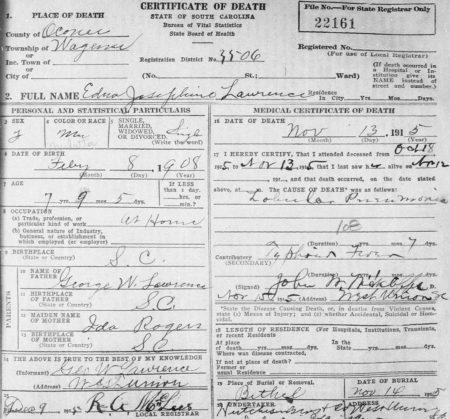 CERTIFICATE OF DEATH
STATE OF SOUTH CAROLINA
Bureau of Vital Statistics
State Board of Health
File No.—For State Registrar Only
22161
1. PLACE OF DEATH
County of Oconee
Township of Wagener
or
Inc. Town of
or
City of
Registration District No. 3506
(No. St.; Ward)
Registered No.
(For use of Local Registrar)
(If death occurred in a Hospital or Institution give its NAME instead of street and number.)
2. FULL NAME Edna Josephine Lawrence
Residence
In City Yrs. Mos. Days.
PERSONAL AND STATISTICAL PARTICULARS
3 SEX
F
4 COLOR OR RACE
5 SINGLE, MARRIED, WIDOWED, OR DIVORCED.
(Write the word)
Single
6 DATE OF BIRTH
Feby 8 1908
(Month) (Day) (Year)
7 AGE
7 yrs. 9 mos. 5 ds.
IF LESS than 1 day, hrs. or min?
8 OCCUPATION
(a) Trade, profession, or particular kind of work
At Home
(b) General nature of Industry, business, or establishment in which employed (or employer)
9 BIRTHPLACE
(State or Country)
S. C.
PARENTS
10 NAME OF FATHER
George W. Lawrence
11 BIRTHPLACE OF FATHER
(State or Country)
S. C.
12 MAIDEN NAME OF MOTHER
Ida Rogers
13 BIRTHPLACE OF MOTHER
(State or Country)
S. C.
14 THE ABOVE IS TRUE TO THE BEST OF MY KNOWLEDGE
(Informant) Geo W. Lawrence
(Address) W. Union
15
Dec 9 1915
LOCAL REGISTRAR
MEDICAL CERTIFICATE OF DEATH
16 DATE OF DEATH
Nov 13 1915
(Month) (Day) (Year)
17 I HEREBY CERTIFY, That I attended deceased from Oct 18
1915, to Nov 13, 1915 that I last saw alive on Nov 12
191 , and that death occurred, on the date stated
above, at m. The CAUSE OF DEATH* was as follows:
Lobular Pneumonia
108
(Duration) yrs. mos. 7 days.
Contributory Typhoid Fever
(SECONDARY)
(Duration) yrs. mos. days
(Signed) John M.
Nov 1915 (Address) West Union SC
*State the Disease Causing Death, or, in deaths from Violent Causes, state (1) Means of Injury; and (2) whether Accidental, Suicidal or Homicidal.
18 LENGTH OF RESIDENCE (For Hospitals, Institutions, Transients, or recent Residents
At place of death yrs. mos. days. In the State yrs. mos. days
Where was disease contracted, if not at place of death?
Former or usual Residence
19 Place of Burial or Removal.
Bethel
DATE OF BURIAL
Nov 14 1915
20 UNDERTAKER
(Address)